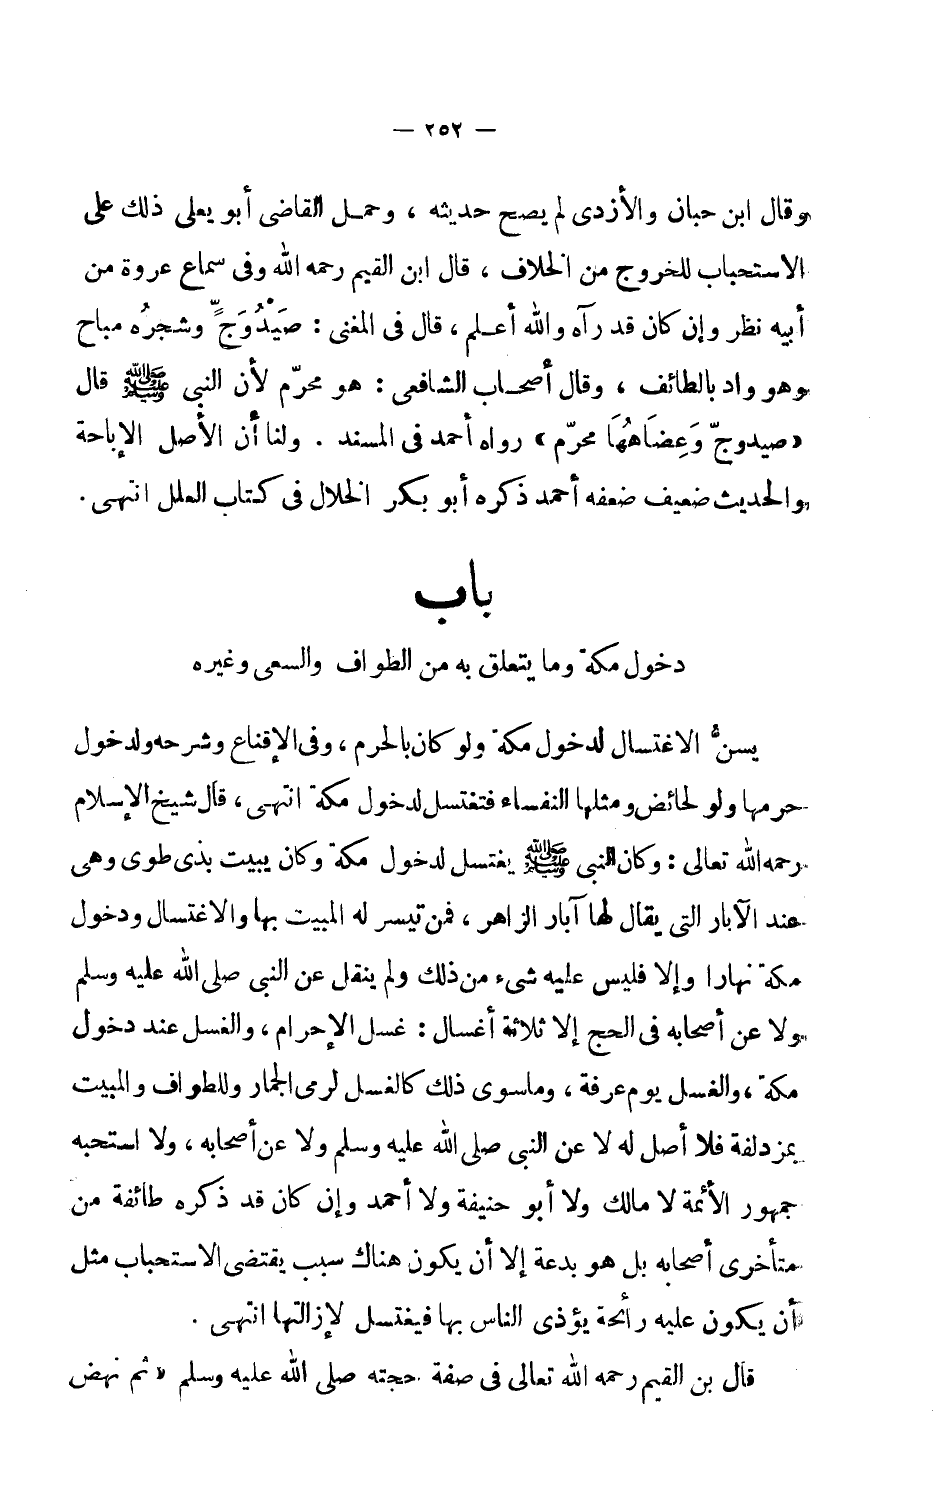 — ٢٥٢ —
وقال ابن حبان والأزدى لم يصح حديثه ، وحمل القاضى أبو يعلى ذلك على
الاستحباب للخروج من الخلاف ، قال ابن القيم رحمه الله وفى سماع عروة من
أبيه نظر وإن كان قد رآه والله أعلم ، قال فى المغنى : صَيْدُ وَجٍّ وشجرُه مباح
وهو واد بالطائف ، وقال أصحاب الشافعى : هو محرّم لأن النبى ﷺ قال
« صيد وجّ وَعِضَاهُهَا محرّم » رواه أحمد فى المسند . ولنا أن الأصل الإباحة
والحديث ضعيف ضعفه أحمد ذكره أبو بكر الخلال فى كتاب العلل انتهى .
باب
دخول مكة وما يتعلق به من الطواف والسعى وغيره
يسنُّ الاغتسال لدخول مكة ولو كان بالحرم ، وفى الإقناع وشرحه ولدخول
حرمها ولو لحائض ومثلها النفساء فتغتسل لدخول مكة انتهى ، قال شيخ الإسلام
رحمه الله تعالى : وكان النبى ﷺ يغتسل لدخول مكة وكان يبيت بذى طوى وهى
عند الآبار التى يقال لها آبار الزاهر ، فمن تيسر له المبيت بها والاغتسال ودخول
مكة نهارا وإلا فليس عليه شىء من ذلك ولم ينقل عن النبى صلى الله عليه وسلم
ولا عن أصحابه فى الحج إلا ثلاثة أغسال : غسل الإحرام ، والغسل عند دخول
مكة ، والغسل يوم عرفة ، وماسوى ذلك كالغسل لرمى الجمار وللطواف والمبيت
بمزدلفة فلا أصل له لا عن النبى صلى الله عليه وسلم ولا عن أصحابه ، ولا استحبه
جمهور الأئمة لا مالك ولا أبو حنيفة ولا أحمد وإن كان قد ذكره طائفة من
متأخرى أصحابه بل هو بدعة إلا أن يكون هناك سبب يقتضى الاستحباب مثل
أن يكون عليه رائحة يؤذى الناس بها فيغتسل لإزالتها انتهى .
قال بن القيم رحمه الله تعالى فى صفة حجته صلى الله عليه وسلم « ثم نهض